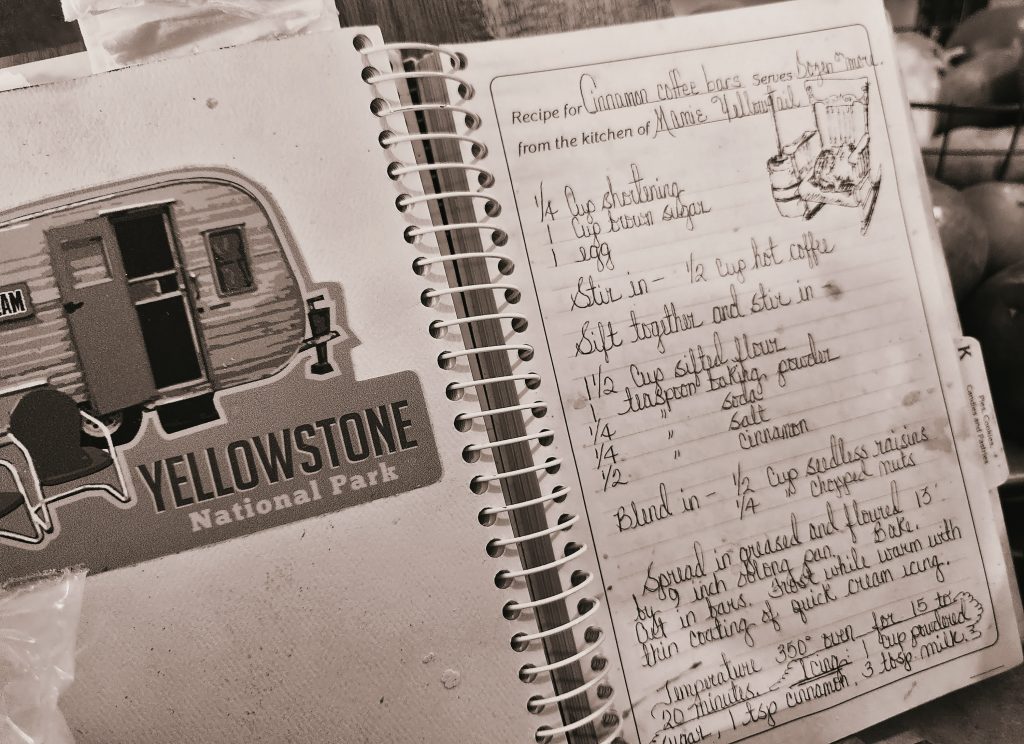 EAM
YELLOWSTONE
National Park
Recipe for Cinnamon coffee bars Serves Dozen + more.
from the kitchen of Mamie Yellowtail
1/4 Cup shortening
1 Cup brown sugar
1 egg
Stir in - 1/2 Cup hot coffee
Sift together and stir in
1 1/2 Cup sifted flour
1 teaspoon baking powder
1/4 " soda
1/4 " salt
1/2 " cinnamon
Blend in - 1/2 Cup seedless raisins
1/4 " chopped nuts
Spread in greased and floured 13
by 9 inch oblong pan. Bake.
Cut in bars. Frost while warm with
thin coating of quick cream icing.
Temperature 350° oven for 15 to
20 minutes. Icing: 1 cup powdered
sugar, 1 tsp cinnamon. 3 tbsp milk.
K
Pies, Cookies,
Candies and Pastries